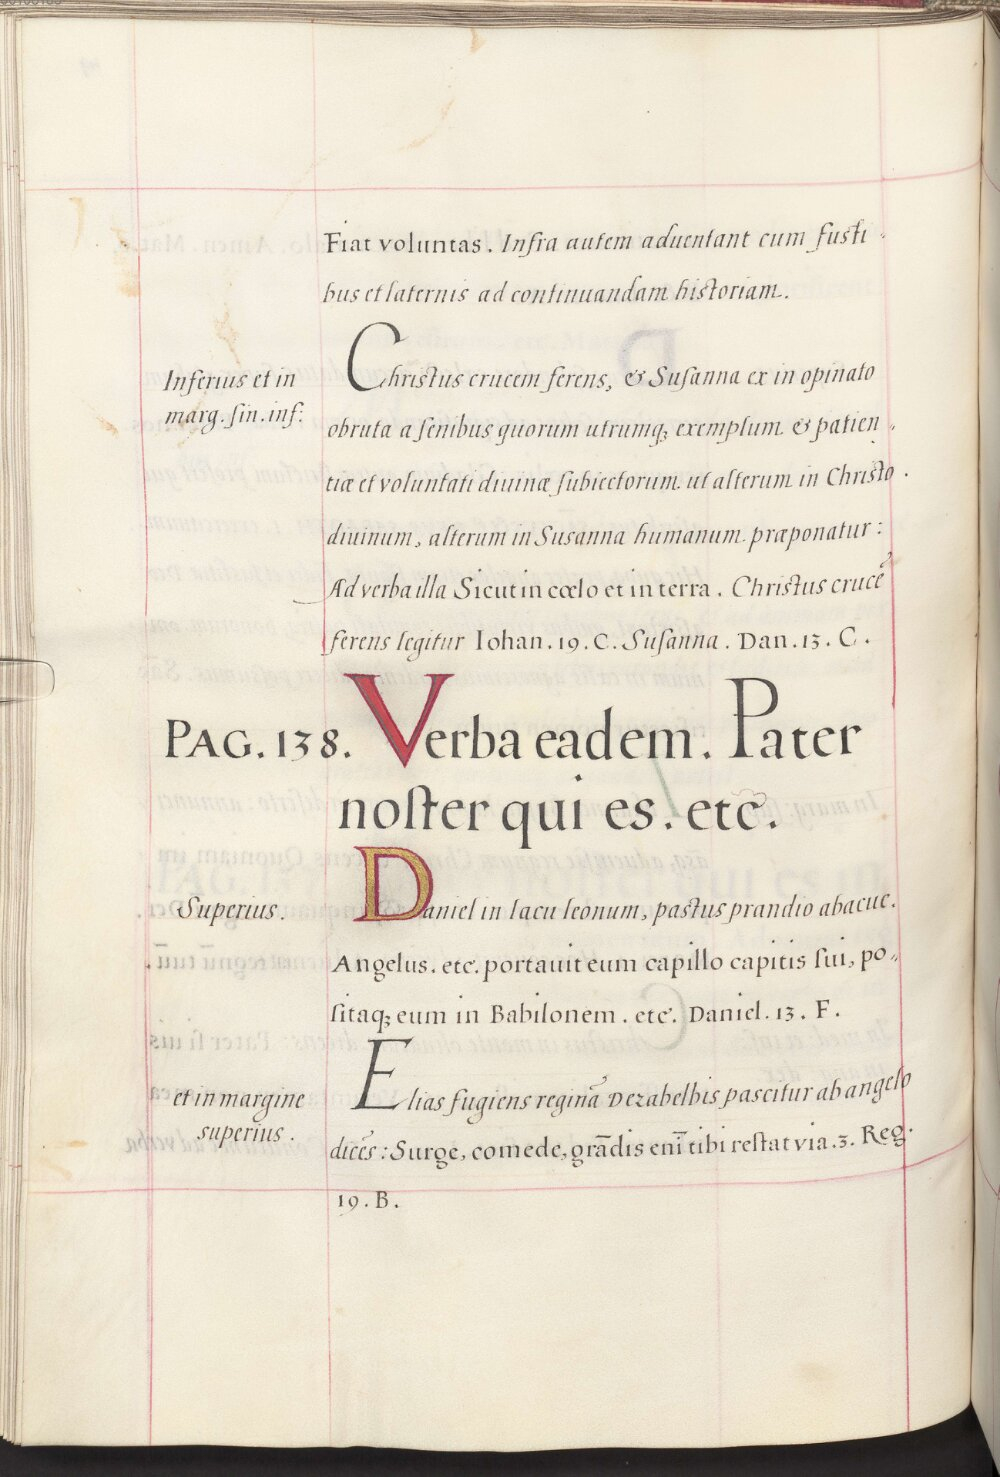 Fiat voluntas. Infra autem aduentant cum fusti
bus et laternis ad continuandam historiam.
Inferius et in
marg. sin. inf:
Christus crucem ferens, & Susanna ex in opinato
obruta a senibus quorum utrumq; exemplum & patien
tiæ et voluntati diuinæ subiectorum ut alterum in Christo
diuinum, alterum in Susanna humanum præponatur:
Ad verba illa Sicut in cœlo et in terra. Christus crucē
ferens legitur Iohan. 19. C. Susanna. Dan. 13. C.
PAG. 138. Verba eadem. Pater
noster qui es. etc.
Superius.
Daniel in lacu leonum, pastus prandio abacuc.
Angelus. etc. portauit eum capillo capitis sui, po-
sitaq; eum in Babilonem. etc. Daniel. 13. F.
et in margine
superius.
Elias fugiens reginā Dezabelbis pascitur ab angelo
dicēs: Surge, comede, grādis enī tibi restat via. 3. Reg.
19. B.